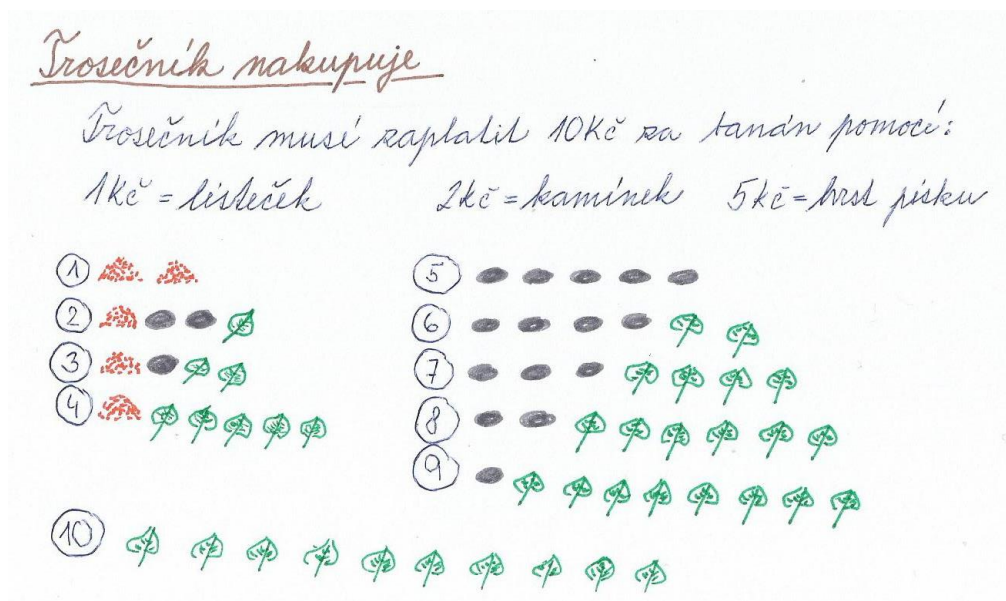 Trosečník nakupuje
Trosečník musí zaplatit 10Kč za banán pomocí:
1Kč = lísteček 2Kč = kamínek 5Kč = hrst písku
1
2
3
4
5
6
7
8
9
10